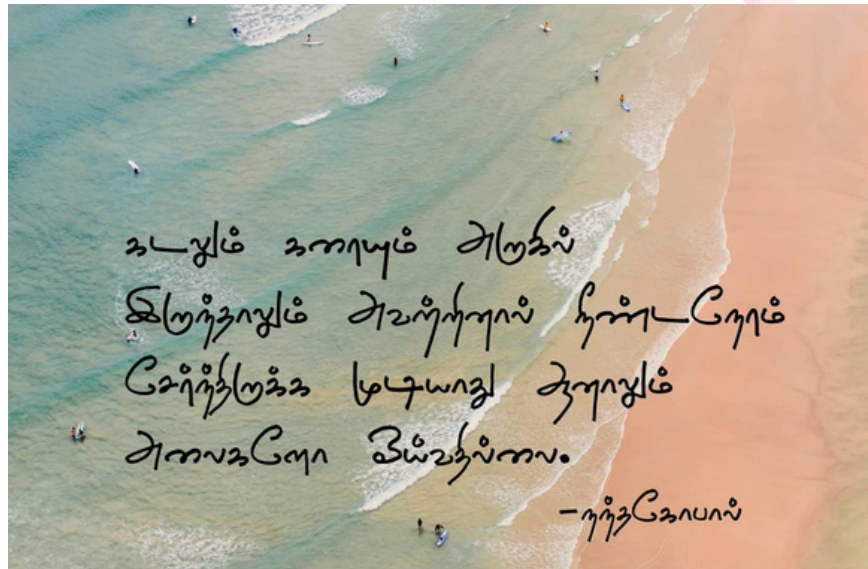 கடலும் கரையும் அருகில்
இருந்தாலும் அவற்றினால் நீண்டநேரம்
சேர்ந்திருக்க முடியாது ஆனாலும்
அலைகளோ ஓய்வதில்லை.
-நந்தகோபால்